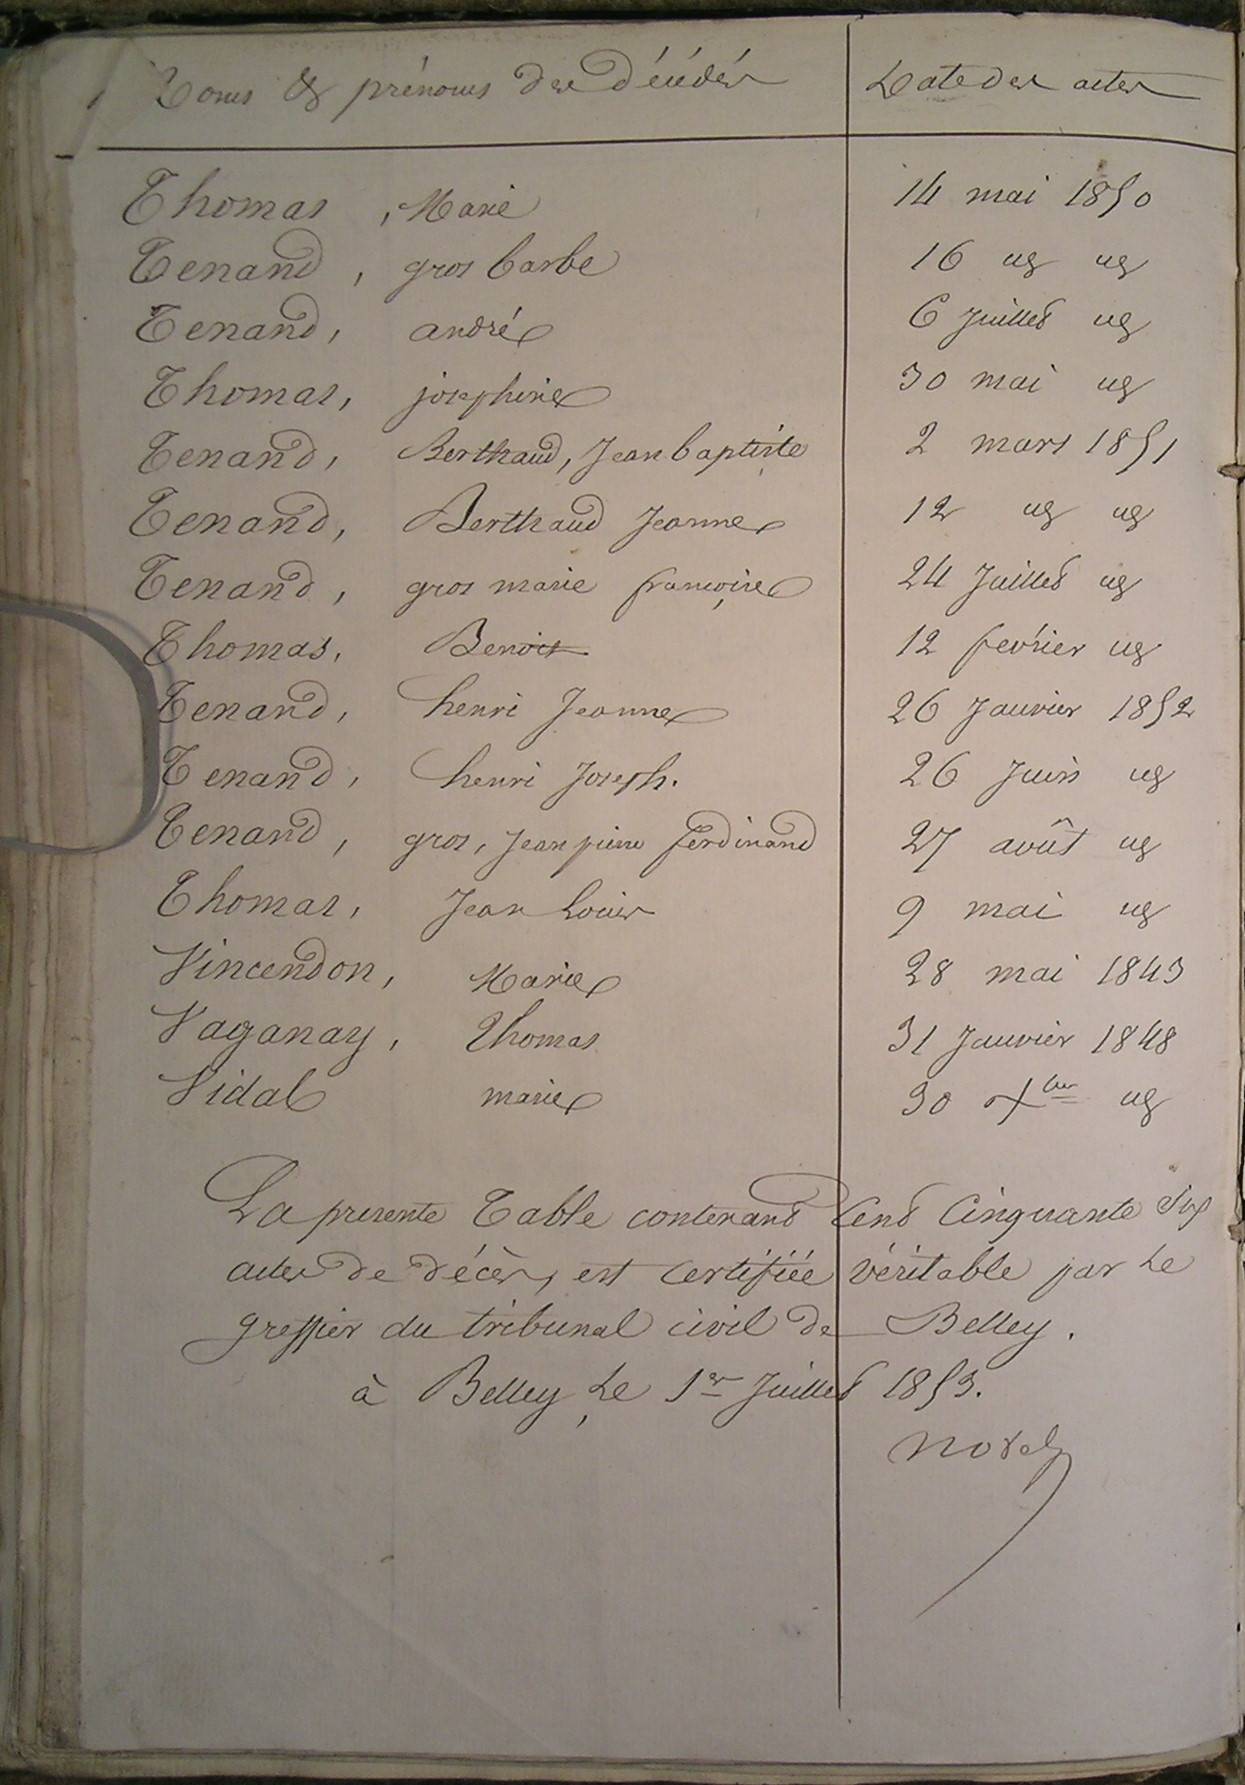 Noms & prénoms des décédés Date des actes
Thomas, Marie 14 mai 1850
Tenand, gros barbe 16 id id
Tenand, andré 6 Juillet id
Thomas, josephine 30 mai id
Tenand, Berthaud, Jean baptiste 2 mars 1851
Tenand, Berthaud Jeanne 12 id id
Tenand, gros marie françoise 24 Juillet id
Thomas, Benoit 12 fevrier id
Tenand, henri Jeanne 26 Janvier 1852
Tenand, henri Joseph. 26 Juin id
Tenand, gros, Jean pierre ferdinand 27 août id
Thomas, Jean Louis 9 mai id
Vincendon, Marie 28 mai 1843
Vaganay, Thomas 31 Janvier 1848
Vidal marie 30 Xbre id
La presente Table contenant Cent Cinquante six
actes de décès, est certifiée véritable par le
greffier du tribunal civil de Belley.
à Belley, le 1er Juillet 1853.